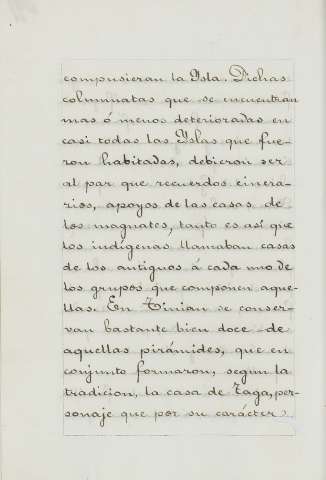 compusieran la Ysla. Dichas
columnatas que se encuentran
mas ó menos deterioradas en
casi todas las Yslas que fue-
ron habitadas, debieron ser
al par que recuerdos cinera-
rios, apoyos de las casas de
los magnates, tanto es así que
los indígenas llamaban casas
de los antiguos á cada uno de
los grupos que componen aque-
llas. En Tinian se conser-
van bastante bien doce de
aquellas pirámides, que en
conjunto formaron, segun la
tradicion, la casa de Taga, per-
sonaje que por su carácter